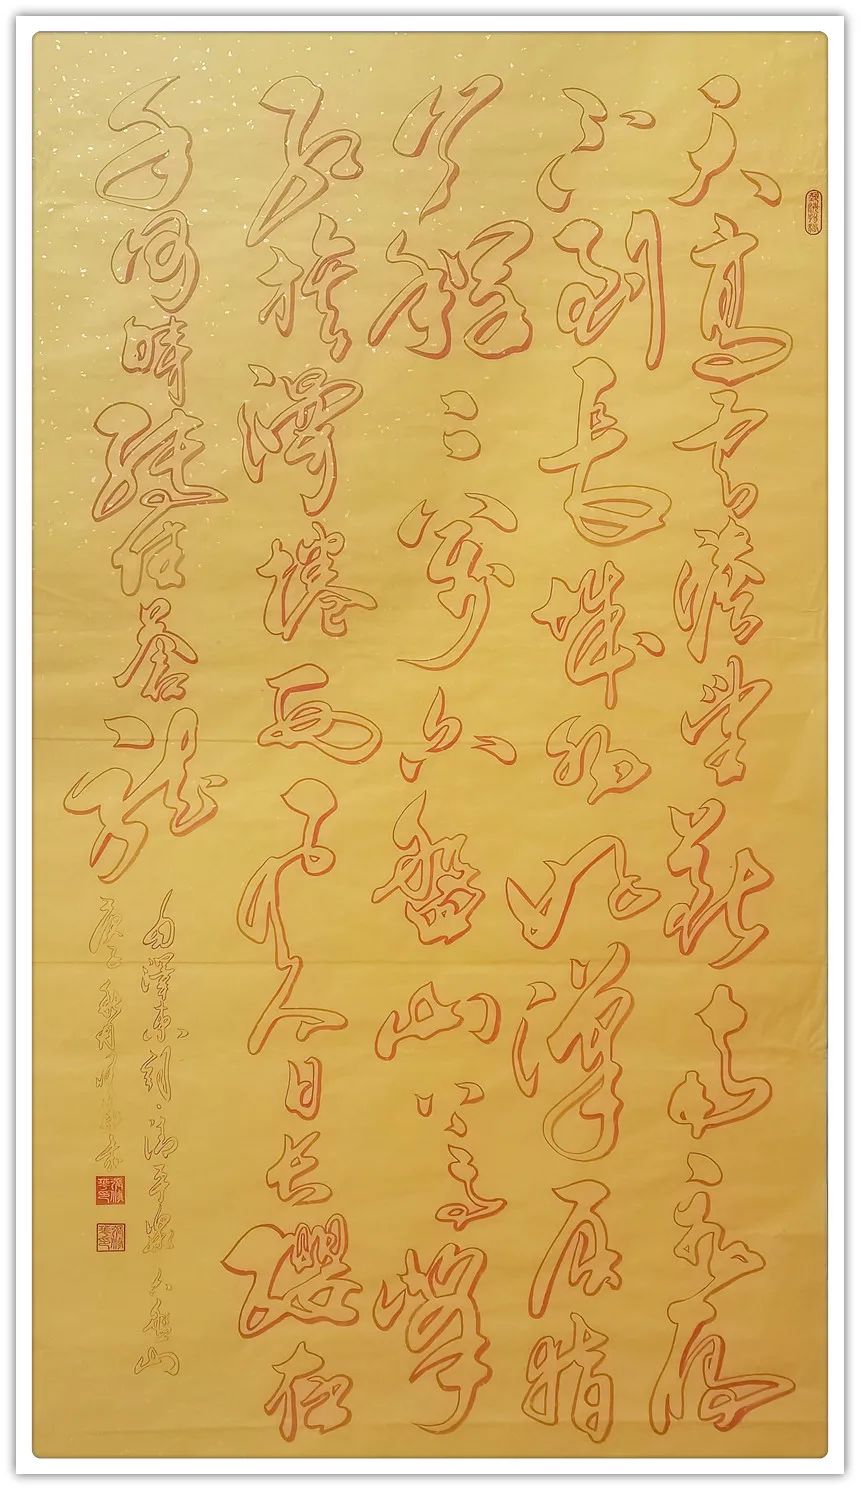 天高云淡望断南飞雁
不到長城非好漢屈指
行程二万六盘山上高峰
红旗漫捲西风今日长缨在
手何時缚住苍龙
毛澤东词·清平樂 六盘山
庚子秋月